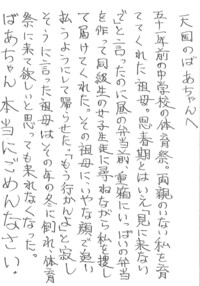 天国のばあちゃんへ
五十一年前の中学校の体育祭。両親のいない私を育
ててくれた祖母。思春期とはいえ「見に来ない
で」と言ったのに昼の弁当前、重箱にいっぱいの弁当
を作って同級生の女子生徒に尋ねながら私を捜し
て届けてくれた。その祖母にいやな顔で追い
払うようにして帰らせた。「もう行かんよ」と寂し
そうに言った祖母はその年の冬に倒れ体育
祭に来て欲しいと思っても来れなくなった。
ばあちゃん本当にごめんなさい。